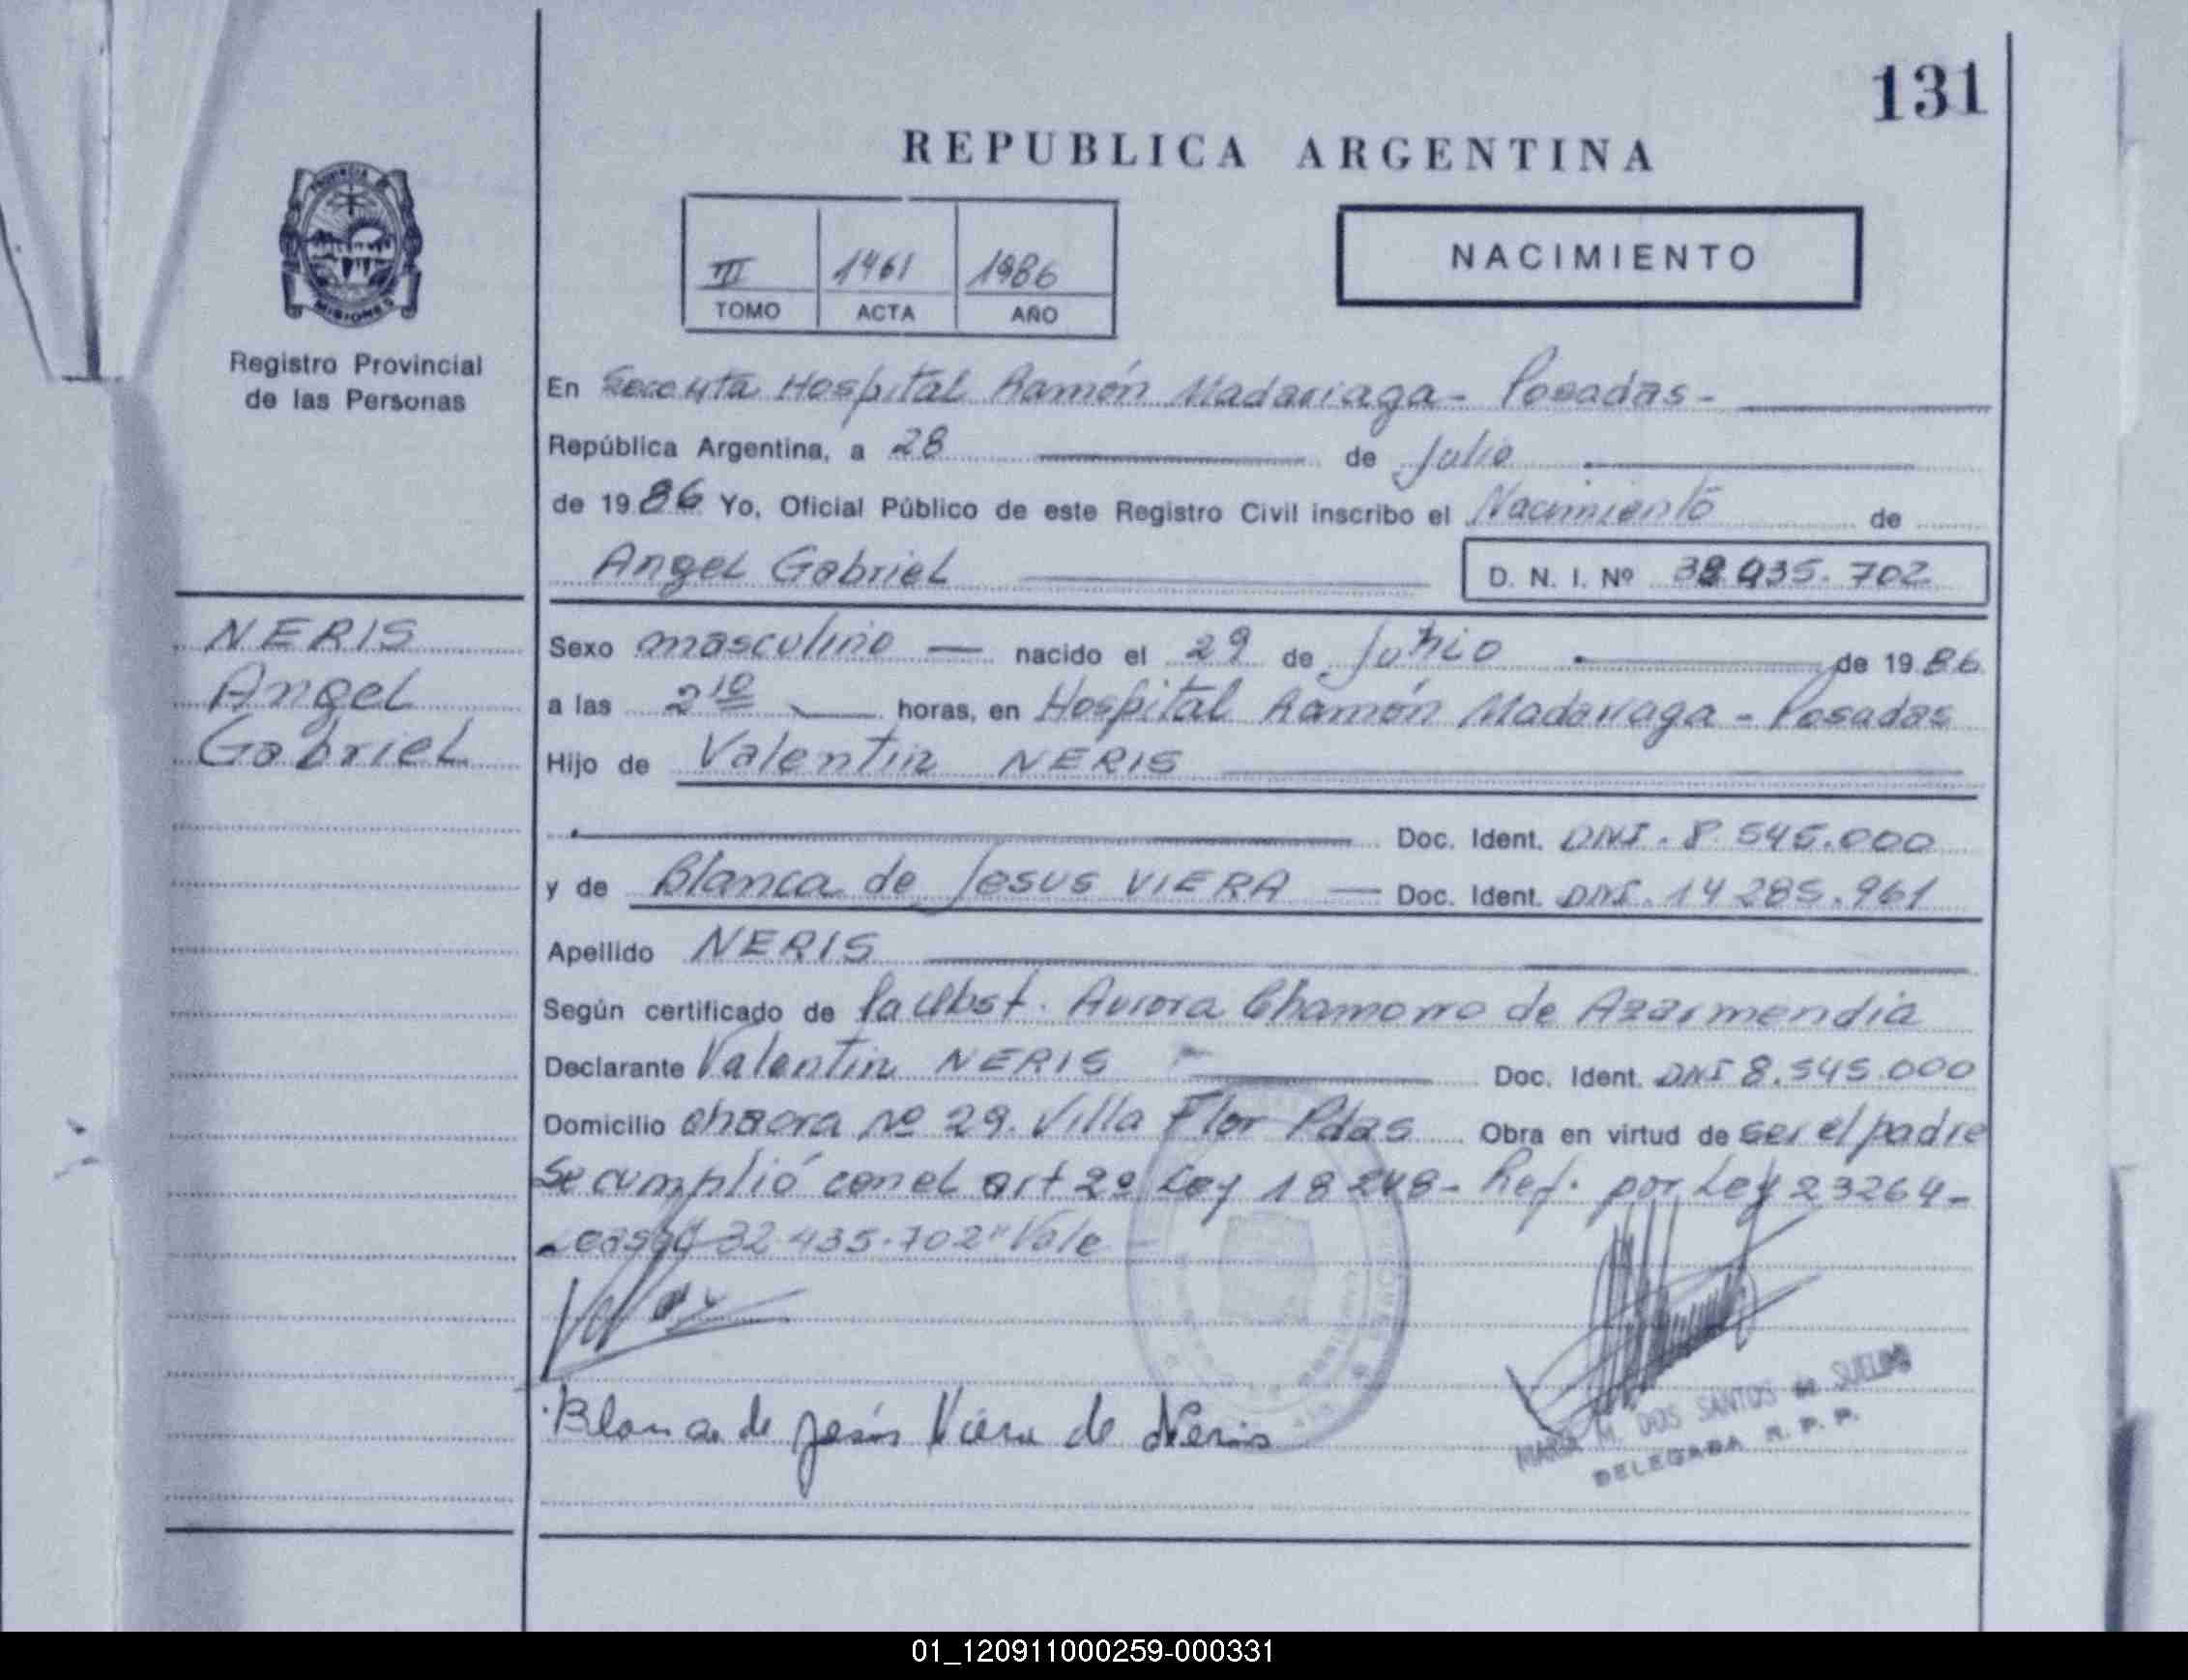 131
REPUBLICA ARGENTINA
PROVINCIA DE
MISIONES
Registro Provincial
de las Personas
III 1461 1986
TOMO ACTA AÑO
NACIMIENTO
En Hospital Ramón Madariaga - Posadas -
República Argentina, a 28 de Julio
de 1986 Yo, Oficial Público de este Registro Civil inscribo el Nacimiento de
Angel Gabriel D. N. I. Nº 32.435.702
NERIS
Angel
Gabriel
Sexo masculino nacido el 29 de Junio de 1986
a las 2 10 horas, en Hospital Ramón Madariaga - Posadas
Hijo de Valentin NERIS
Doc. Ident. DNI. 8.545.000
y de Blanca de Jesus VIERA Doc. Ident. DNI. 14 285.961
Apellido NERIS
Según certificado de la Obst. Aurora Chamorro de Azarmendia
Declarante Valentin NERIS Doc. Ident. DNI 8.545.000
Domicilio chacra Nº 29. Villa Flor Pdas Obra en virtud de ser el padre
Se cumplió con el art 2º Ley 18248 - Ref. por Ley 23264 -
32.435.702" Vale
Blanca de Jesús Viera de Neris
MARIA M. DOS SANTOS de
DELEGADA R. P. P.
01_120911000259-000331